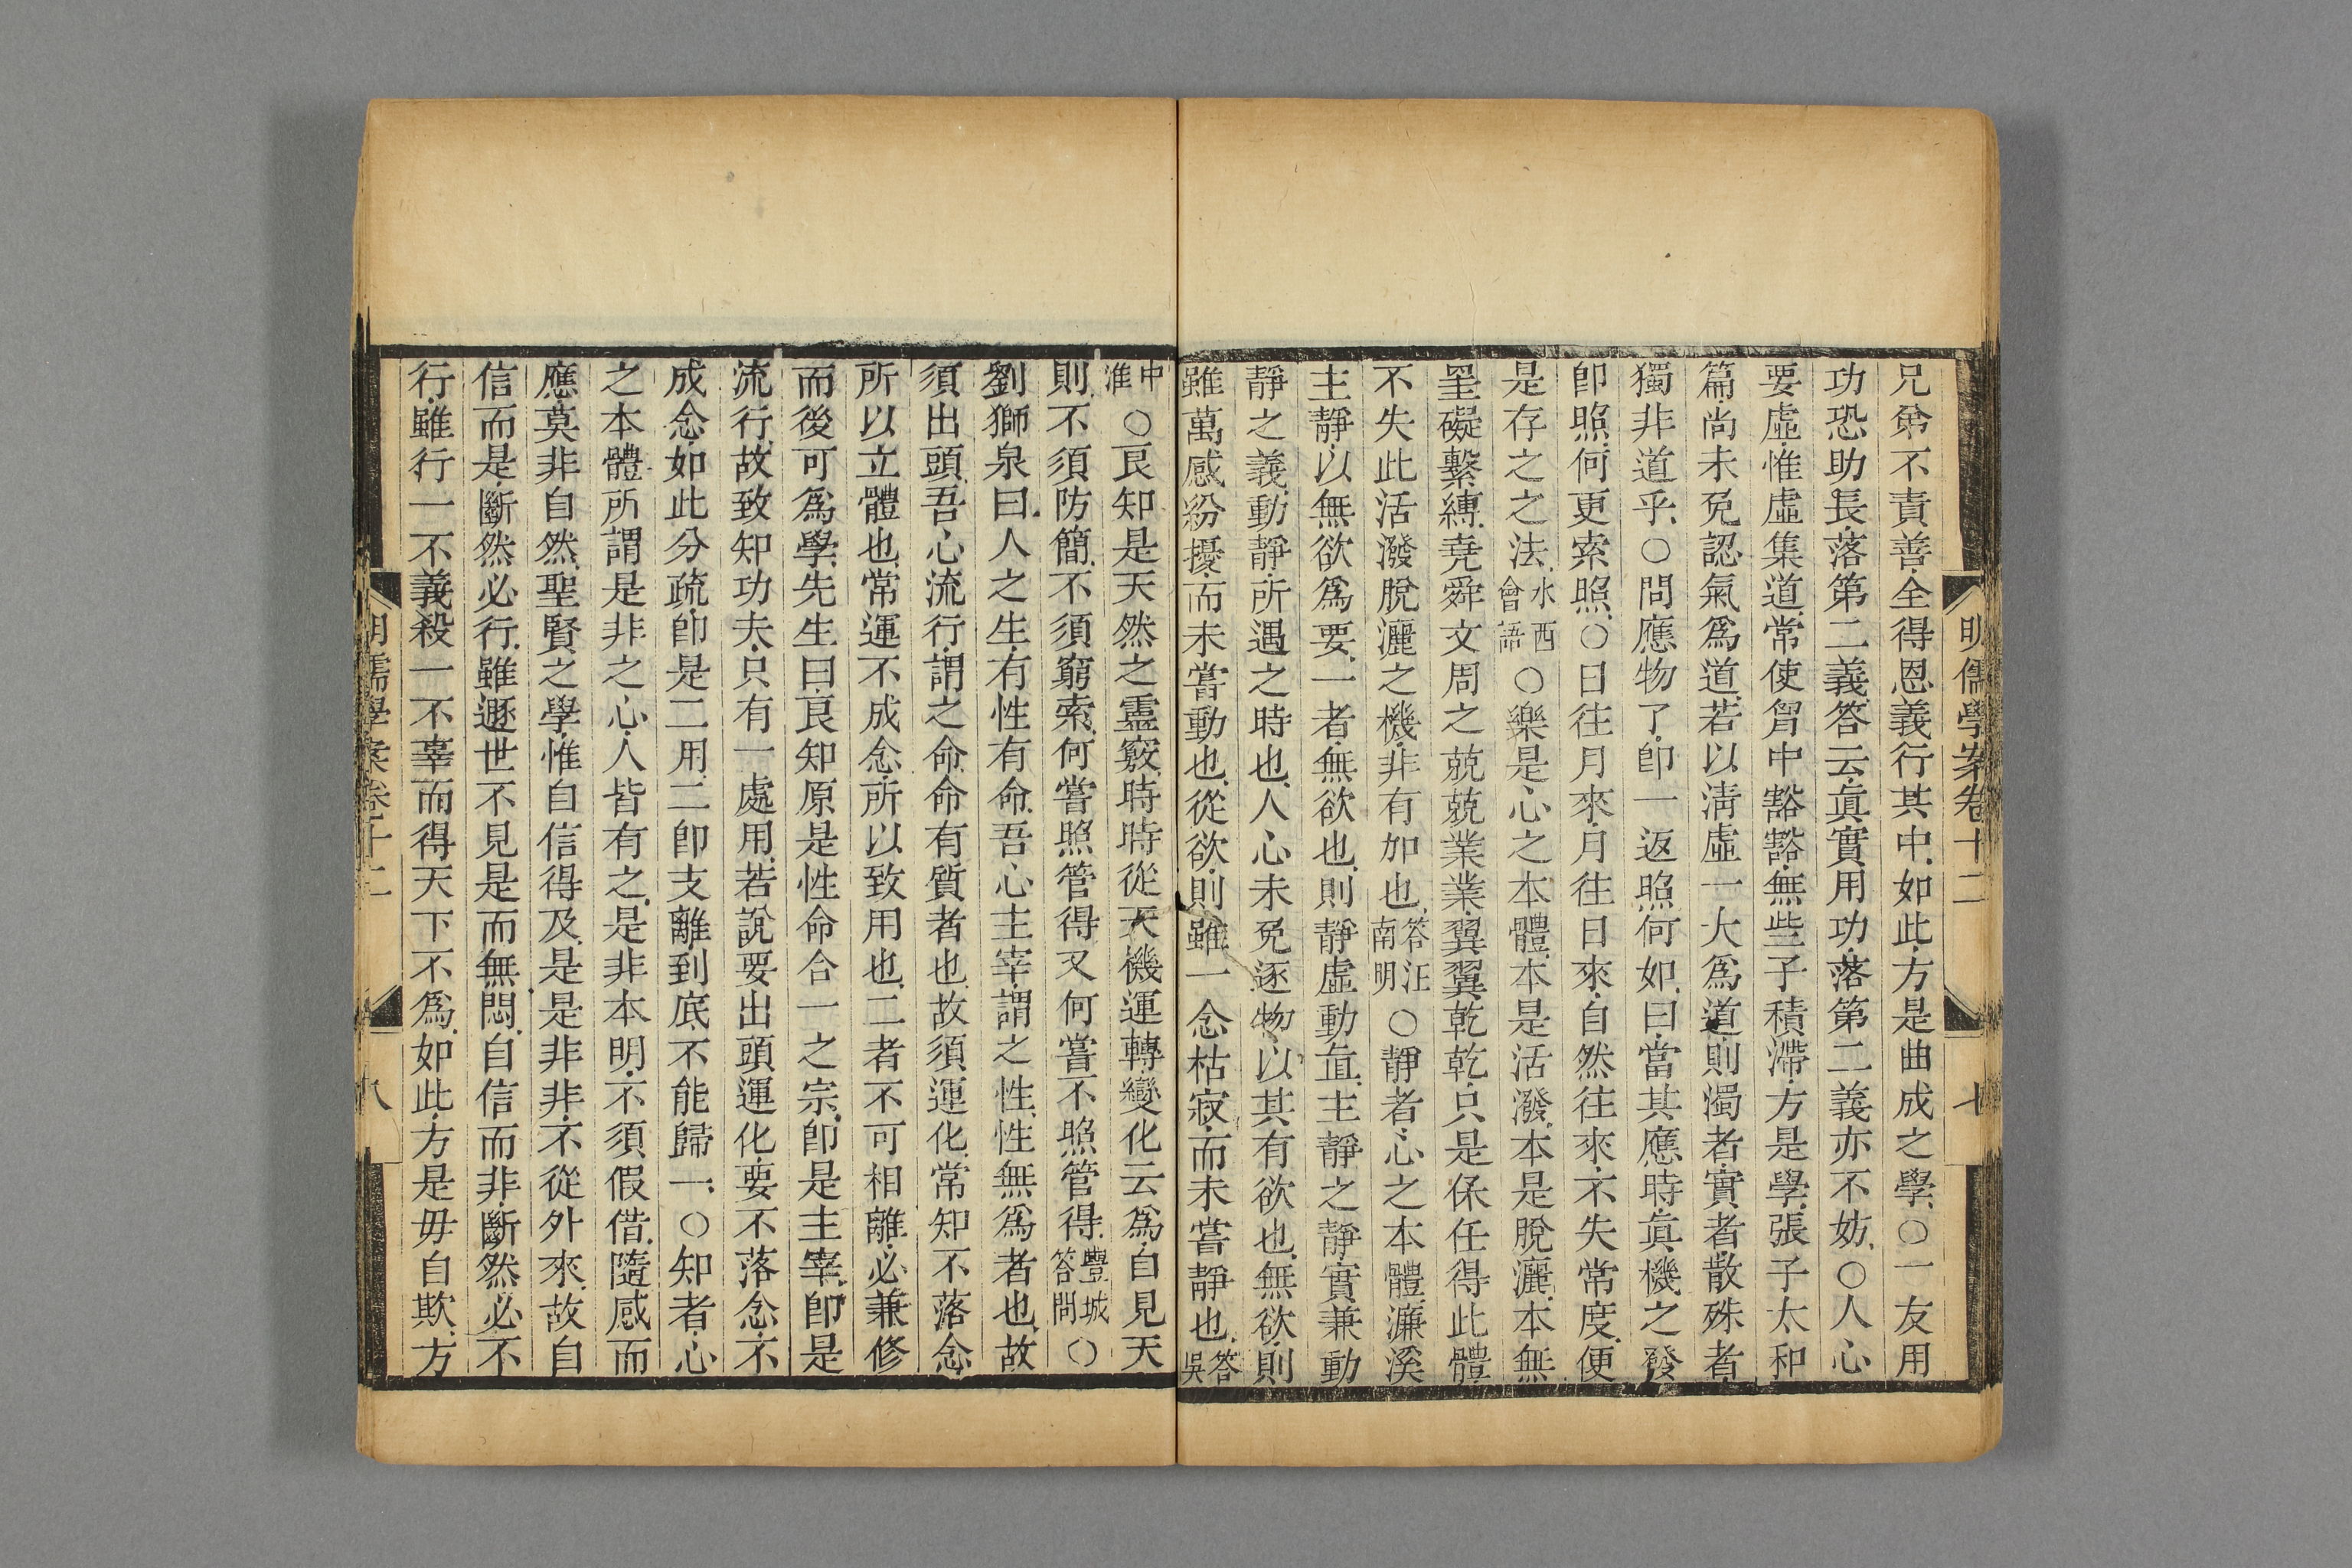 明儒學案卷十二 七
兄弟不責善全得恩義行其中如此方是曲成之學○一友用
功恐助長落第二義答云眞實用功落第二義亦不妨○人心
要虛惟虛集道常使胷中豁豁無些子積滯方是學張子太和
篇尚未免認氣爲道若以淸虛一大爲道則濁者實者散殊者
獨非道乎○問應物了卽一返照何如曰當其應時眞機之發
卽照何更索照○日往月來月往日來自然往來不失常度便
是存之之法水西會語○樂是心之本體本是活潑本是脫灑本無
罣礙繫縛堯舜文周之兢兢業業翼翼乾乾只是保任得此體
不失此活潑脫灑之機非有加也答汪南明○靜者心之本體濂溪
主靜以無欲爲要一者無欲也則靜虛動直主靜之靜實兼動
靜之義動靜所遇之時也人心未免逐物以其有欲也無欲則
雖萬感紛擾而未嘗動也從欲則雖一念枯寂而未嘗靜也答吳
中淮○良知是天然之靈竅時時從天機運轉變化云爲自見天
則不須防簡不須窮索何嘗照管得又何嘗不照管得豐城答問○
劉獅泉曰人之生有性有命吾心主宰謂之性性無爲者也故
須出頭吾心流行謂之命命有質者也故須運化常知不落念
所以立體也常運不成念所以致用也二者不可相離必兼修
而後可爲學先生曰良知原是性命合一之宗卽是主宰卽是
流行故致知功夫只有一處用若說要出頭運化要不落念不
成念如此分疏卽是二用二卽支離到底不能歸一○知者心
之本體所謂是非之心人皆有之是非本明不須假借隨感而
應莫非自然聖賢之學惟自信得及是是非非不從外來故自
信而是斷然必行雖遯世不見是而無悶自信而非斷然必不
行雖行一不義殺一不辜而得天下不爲如此方是毋自欺方
明儒學案卷十二 八